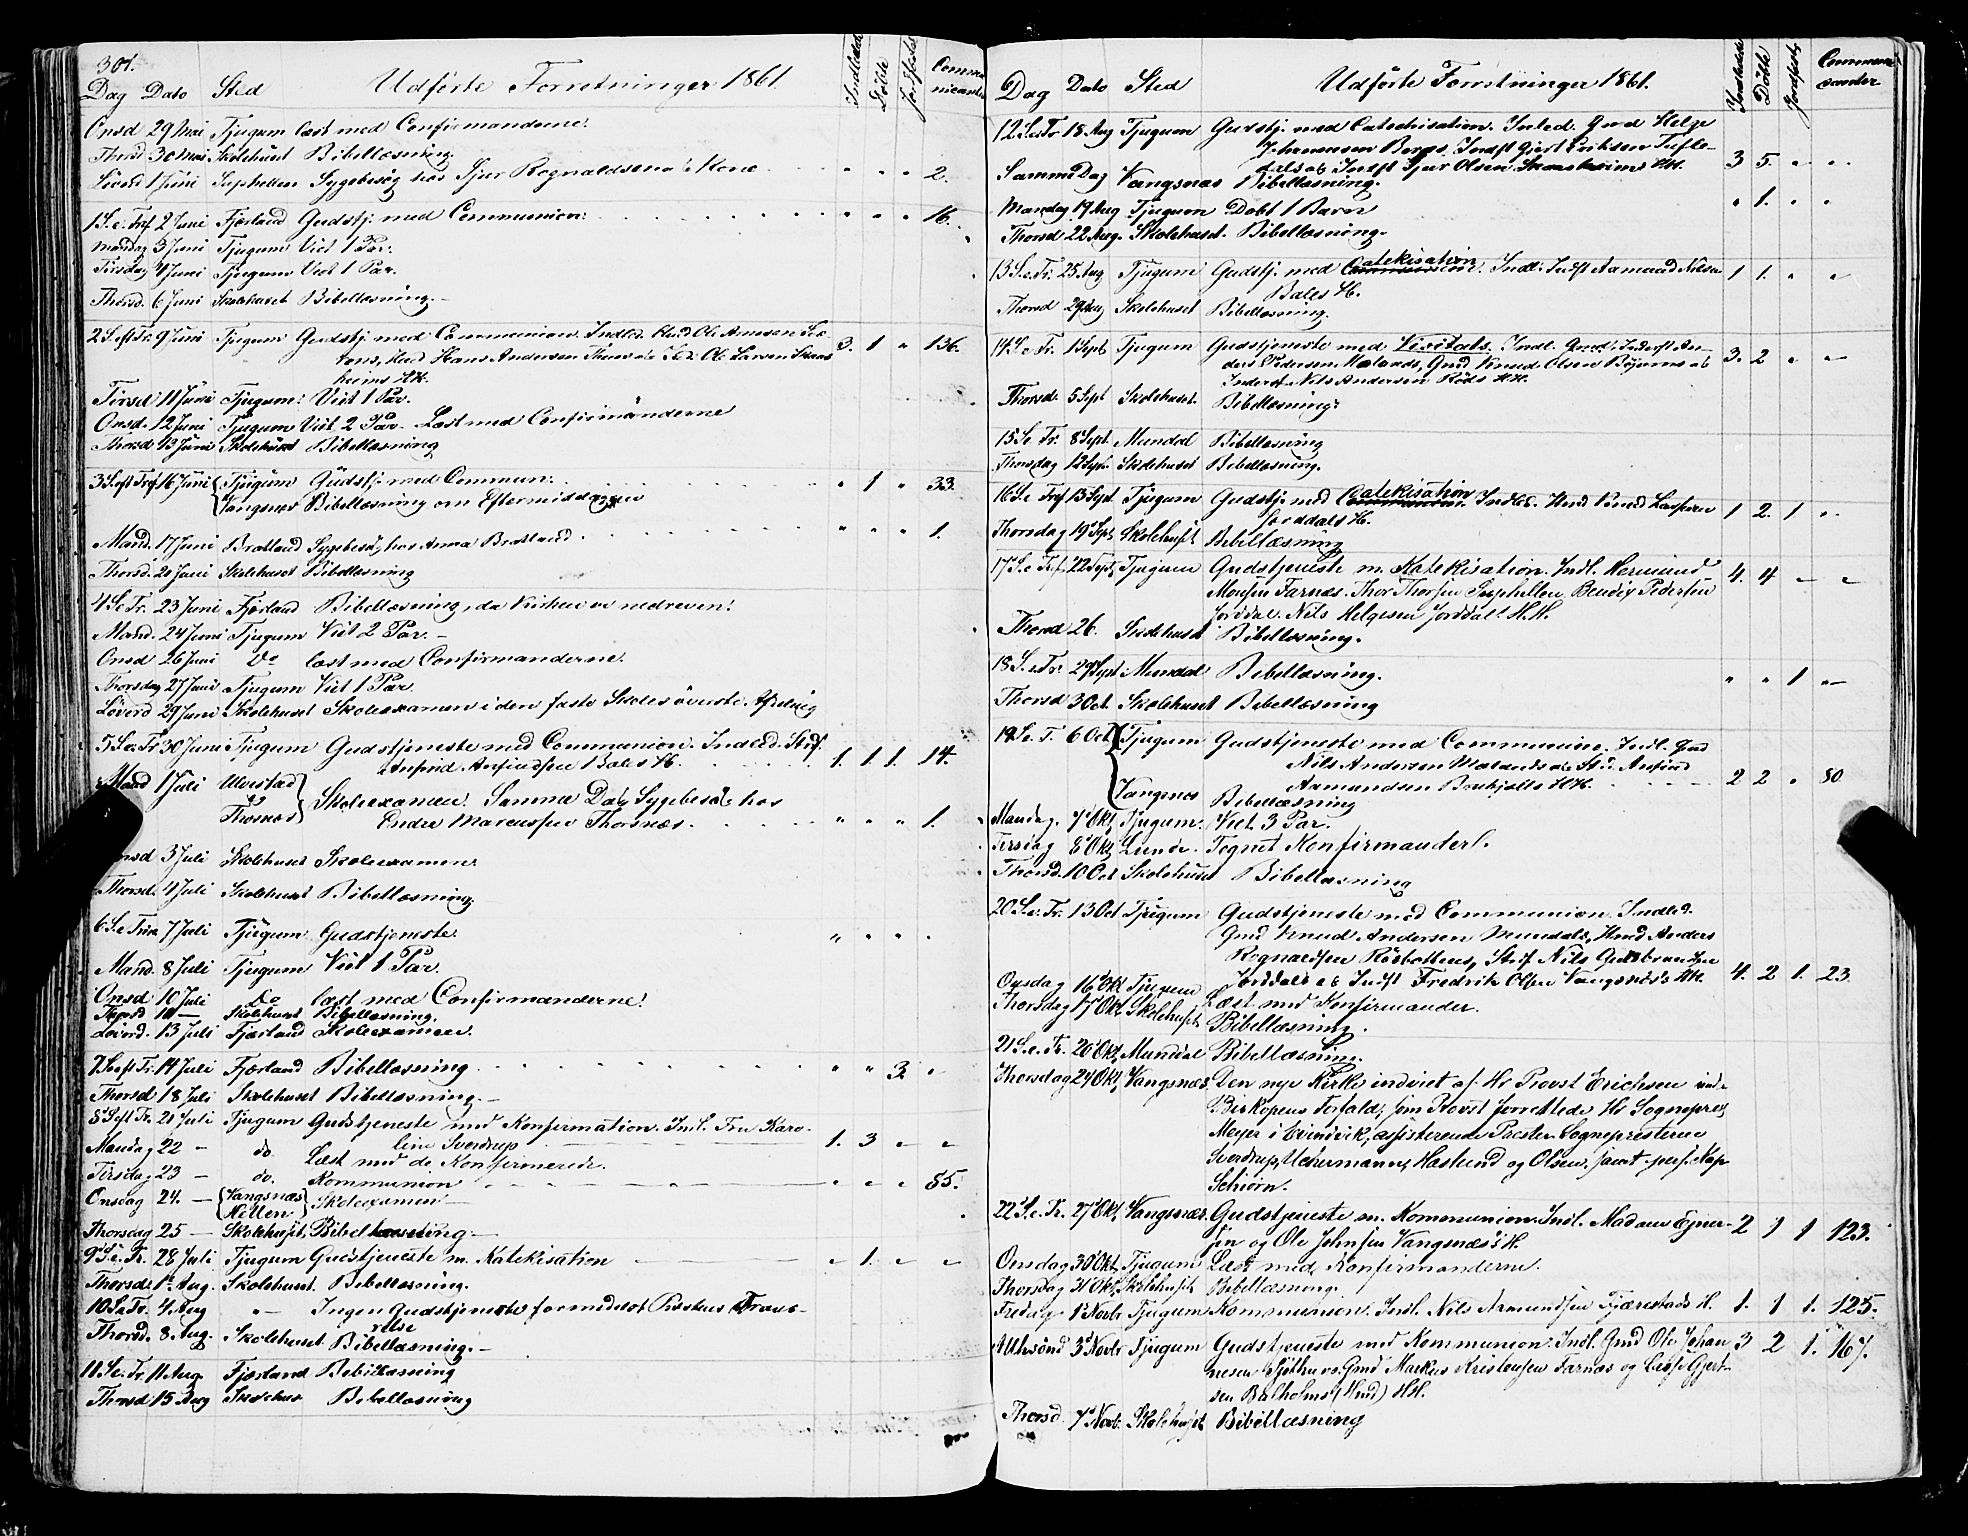 301.
Dag Dato Sted Udførte Forretninger 1861. Indledede Döbte Jordfæstede Communicanter
Onsd 29 Mai Tjugum læst med Confirmanderne.
Thorsd 30 Mai Skolehuset Bibellæsning
Löverd 1 Juni Suphellen Sygebesög hos Sjur Rognaldsens Kone " " " 2.
1 S. e. Trf 2 Juni Fjærland Gudstj. med Communion: " " " 16.
Mandag 3 Juni Tjugum Viet 1 Par.
Tirsdag 4 Juni Tjugum Viet 1 Par.
Thorsd. 6 Juni Skolehuset Bibellæsning.
2 S. eft Tr. 9 Juni Tjugum Gudstj. med Communion. Indled. Hmd Ole Arnesen
Hmd Hans Andersen Ole Larsen 3. 1 " 136.
heims HK.
Tirsd 11 Juni Tjugum: Viet 1 Par.
Onsd. 12 Juni Tjugum Viet 2 Par. Læst med Confirmanderne
Thorsd 13 Juni Skolehuset Bibellæsning
3 S. eft Trf 16 Juni Tjugum Gudstj. med Commun: " 1 " 33.
Vangsnæs Bibellæsning om Eftermiddagen
Mand. 17 Juni Brætland Sygebesög hos Anna Brætland " " " 1.
Thorsd. 20 Juni Skolehuset Bibellæsning
4 S e Tr. 23 Juni Fjærland Bibellæsning, da Kirken er nedreven!
Mand. 24 Juni Tjugum Viet 2 Par.
Onsd 26 Juni Do læst med Confirmanderne.
Thorsdag 27 Juni Tjugum Viet 1 Par.
Löverd 29 Juni Skolehuset Skoleexamen i den faste Skoles överste Afdeling
5 S. e. Tr 30 Juni Tjugum Gudstjeneste med Communion. Indled.
Anfind Anfindsen Bales H. 1. 1 1. 14.
Mand 1 Juli Ulvestad Skoleexamen. Samme Dag Sygebesög hos
Thorsnæs Endre Marcussen Thorsnæs. " " " 1.
Onsd 3 Juli Skolehuset Skoleexamen
Thorsd. 4 Juli Skolehuset Bibellæsning
6 S. e Trin 7 Juli Tjugum Gudstjeneste. " " " "
Mand. 8 Juli Tjugum Viet 1 Par.
Onsd 10 Juli Do læst med Confirmanderne!
Thorsd 11 — Skolehuset Bibellæsning.
Löverd. 13 Juli Fjærland Skoleexamen.
7 S. eft Tr. 14 Juli Fjærland Bibellæsning. " " 3. "
Thorsd 18 Juli Skolehuset Bibellæsning.
8 S eft Tr. 21 Juli Tjugum Gudstjeneste med Konfirmation. Indl. Fru Karo-
line Sverdrup 1. 3 " "
Mandag 22 - do. Læst med de Konfirmerede.
Tirsdag 23 — do. Kommunion " " " 85.
Onsdag 24. — Vangsnæs Skoleexamen
Hellen
Thorsdag 25 — Skolehuset, Bibellæsning
9 S. e. Tr. 28 Juli Tjugum Gudstjeneste m. Katekisation " 1. " "
Thorsd. 1 Aug. Skolehuset. Bibellæsning.
10 S e Tr. 4 Aug " Ingen Gudstjeneste formedelst Præstens Fravæ-
relse
Thorsd. 8 Aug. Skolehuset Bibellæsning.
11. S e. Tr. 11 Aug. Fjærland Bibellæsning
Thorsd 15 Aug Skolehus Bibellæsning
Dag Dato Sted Udførte Forretninger 1861. Indledede Döbte Jordfæst. Communicanter
12 S. e. Tr 18 Aug Tjugum Gudstj. med Catechisation. Inled. Gmd Helge
Johannesen Bergs. Indst Gjert Eriksen
Indst Sjur Olsen HK. 3 5. " "
Samme Dag Vangsnæs Bibellæsning.
Mandag 19 Aug Tjugum Döbt 1 Barn " 1. " "
Thorsd 22 Aug. Skolehuset. Bibellæsning.
13 S. e. Tr. 25 Aug Tjugum Gudstj. med Catekisation. Indl. Indst Aamund Nilsen 1 1. " "
Bales H.
Thorsd 29 Aug Skolehuset Bibellæsning.
14 S. e. Tr. 1 Sept Tjugum Gudstjeneste med Visitats. Indl. Gmd. Inderst An-
ders Pedersen Mælands, Gmd Knud Olsen Böyums og 3. 2 " "
Inderst Nils Andersen Röds HK.
Thorsd. 5 Sept Skolehuset. Bibellæsning.
15 S e. Tr. 8 Sept. Mundal Bibellæsning
Thorsdag 12 Sept. Skolehuset Bibellæsning.
16 S e Trf 15 Sept. Tjugum Gudstj. med Catekisation. Indled. Hmd Knud Laspesen 1 2. 1 "
Jorddals H.
Thorsdag 19 Sept Skolehuset Bibellæsning
17 S. e Trf. 22 Sept. Tjugum Gudstjeneste m. Katekisation. Indl. Hermund 4. 4 " "
Monsen Farnæs. Thor Thorsen Suphellen, Bendix Pedersen
Jorddal. Nils Helgesen Jorddal! H.H.
Thorsd 26. Skolehuset Bibellæsning.
18 S. e. Tr. 29 Sept Mundal Bibellæsning. " " 1 "
Thorsd 3 Oct. Skolehuset Bibellæsning
19 S. e. T. 6 Oct. Tjugum Gudstjeneste med Communion. Indl. Gmd
Nils Andersen Mælands Anfind
Aamundsen HK. 2 2 " 80
Vangsnæs Bibellæsning
Mandag. 7 Okt. Tjugum. Viet 3 Par.
Tirsdag 8 Okt. Tegnet Konfirmander.
Thorsd. 10 Oct Skolehuset Bibellæsning
20 S. e. Tr. 13 Oct Tjugum Gudstjeneste med Communion. Indled.
Gmd Knud Andersen Mundals, Hmd Anders
Rognaldsen Rösbottens, Nils Gudbrandsen
Jorddals og Indst Fredrik Olsen Vangsnæs's HK. 4. 2 1. 23.
Onsdag 16 Okt Tjugum Læst med Konfirmander.
Thorsdag 17 Okt. Skolehuset Bibellæsning.
21 S. e. Tr. 20 Okt. Mundal Bibellæsning.
Thorsdag 24 Okt. Vangsnæs. Den nye Kirke indviet af Hr Provst Erichsen un-
Biskopens Forfald, som Provst forrettede Hr Sognepræst
Meyer i Evindvik, assisterende Præster Sognepresterne
Sverdrup, Uchermann, Haslund og Olsen, samt pers. Kap.
Schiörn.
22 S. e. Tr. 27 Okt. Vangsnæs. Gudstjeneste m. Kommunion. Indl. Madam 2 1 1 123.
sen og Ole Johnsen Vangsnæs's H.
Onsdag 30 Okt. Tjugum Læst med Konfirmanderne.
Thorsdag 31 Okt. Skolehuset Bibellæsning.
Fredag 1 Novbr Tjugum Kommunion. Indl. Nils Armundsen Fjærestads H. 1. 1 1. 125.
3 Novbr Tjugum Gudstjeneste med Kommunion. Indl. Gmd Ole Johan- 3 2 1. 167.
nesen Gmd Markus Kristensen Farnæs og Gjert-
sen Balholms (Hmd) HH.
Thorsd. 7 Novb. Skolehuset Bibellæsning